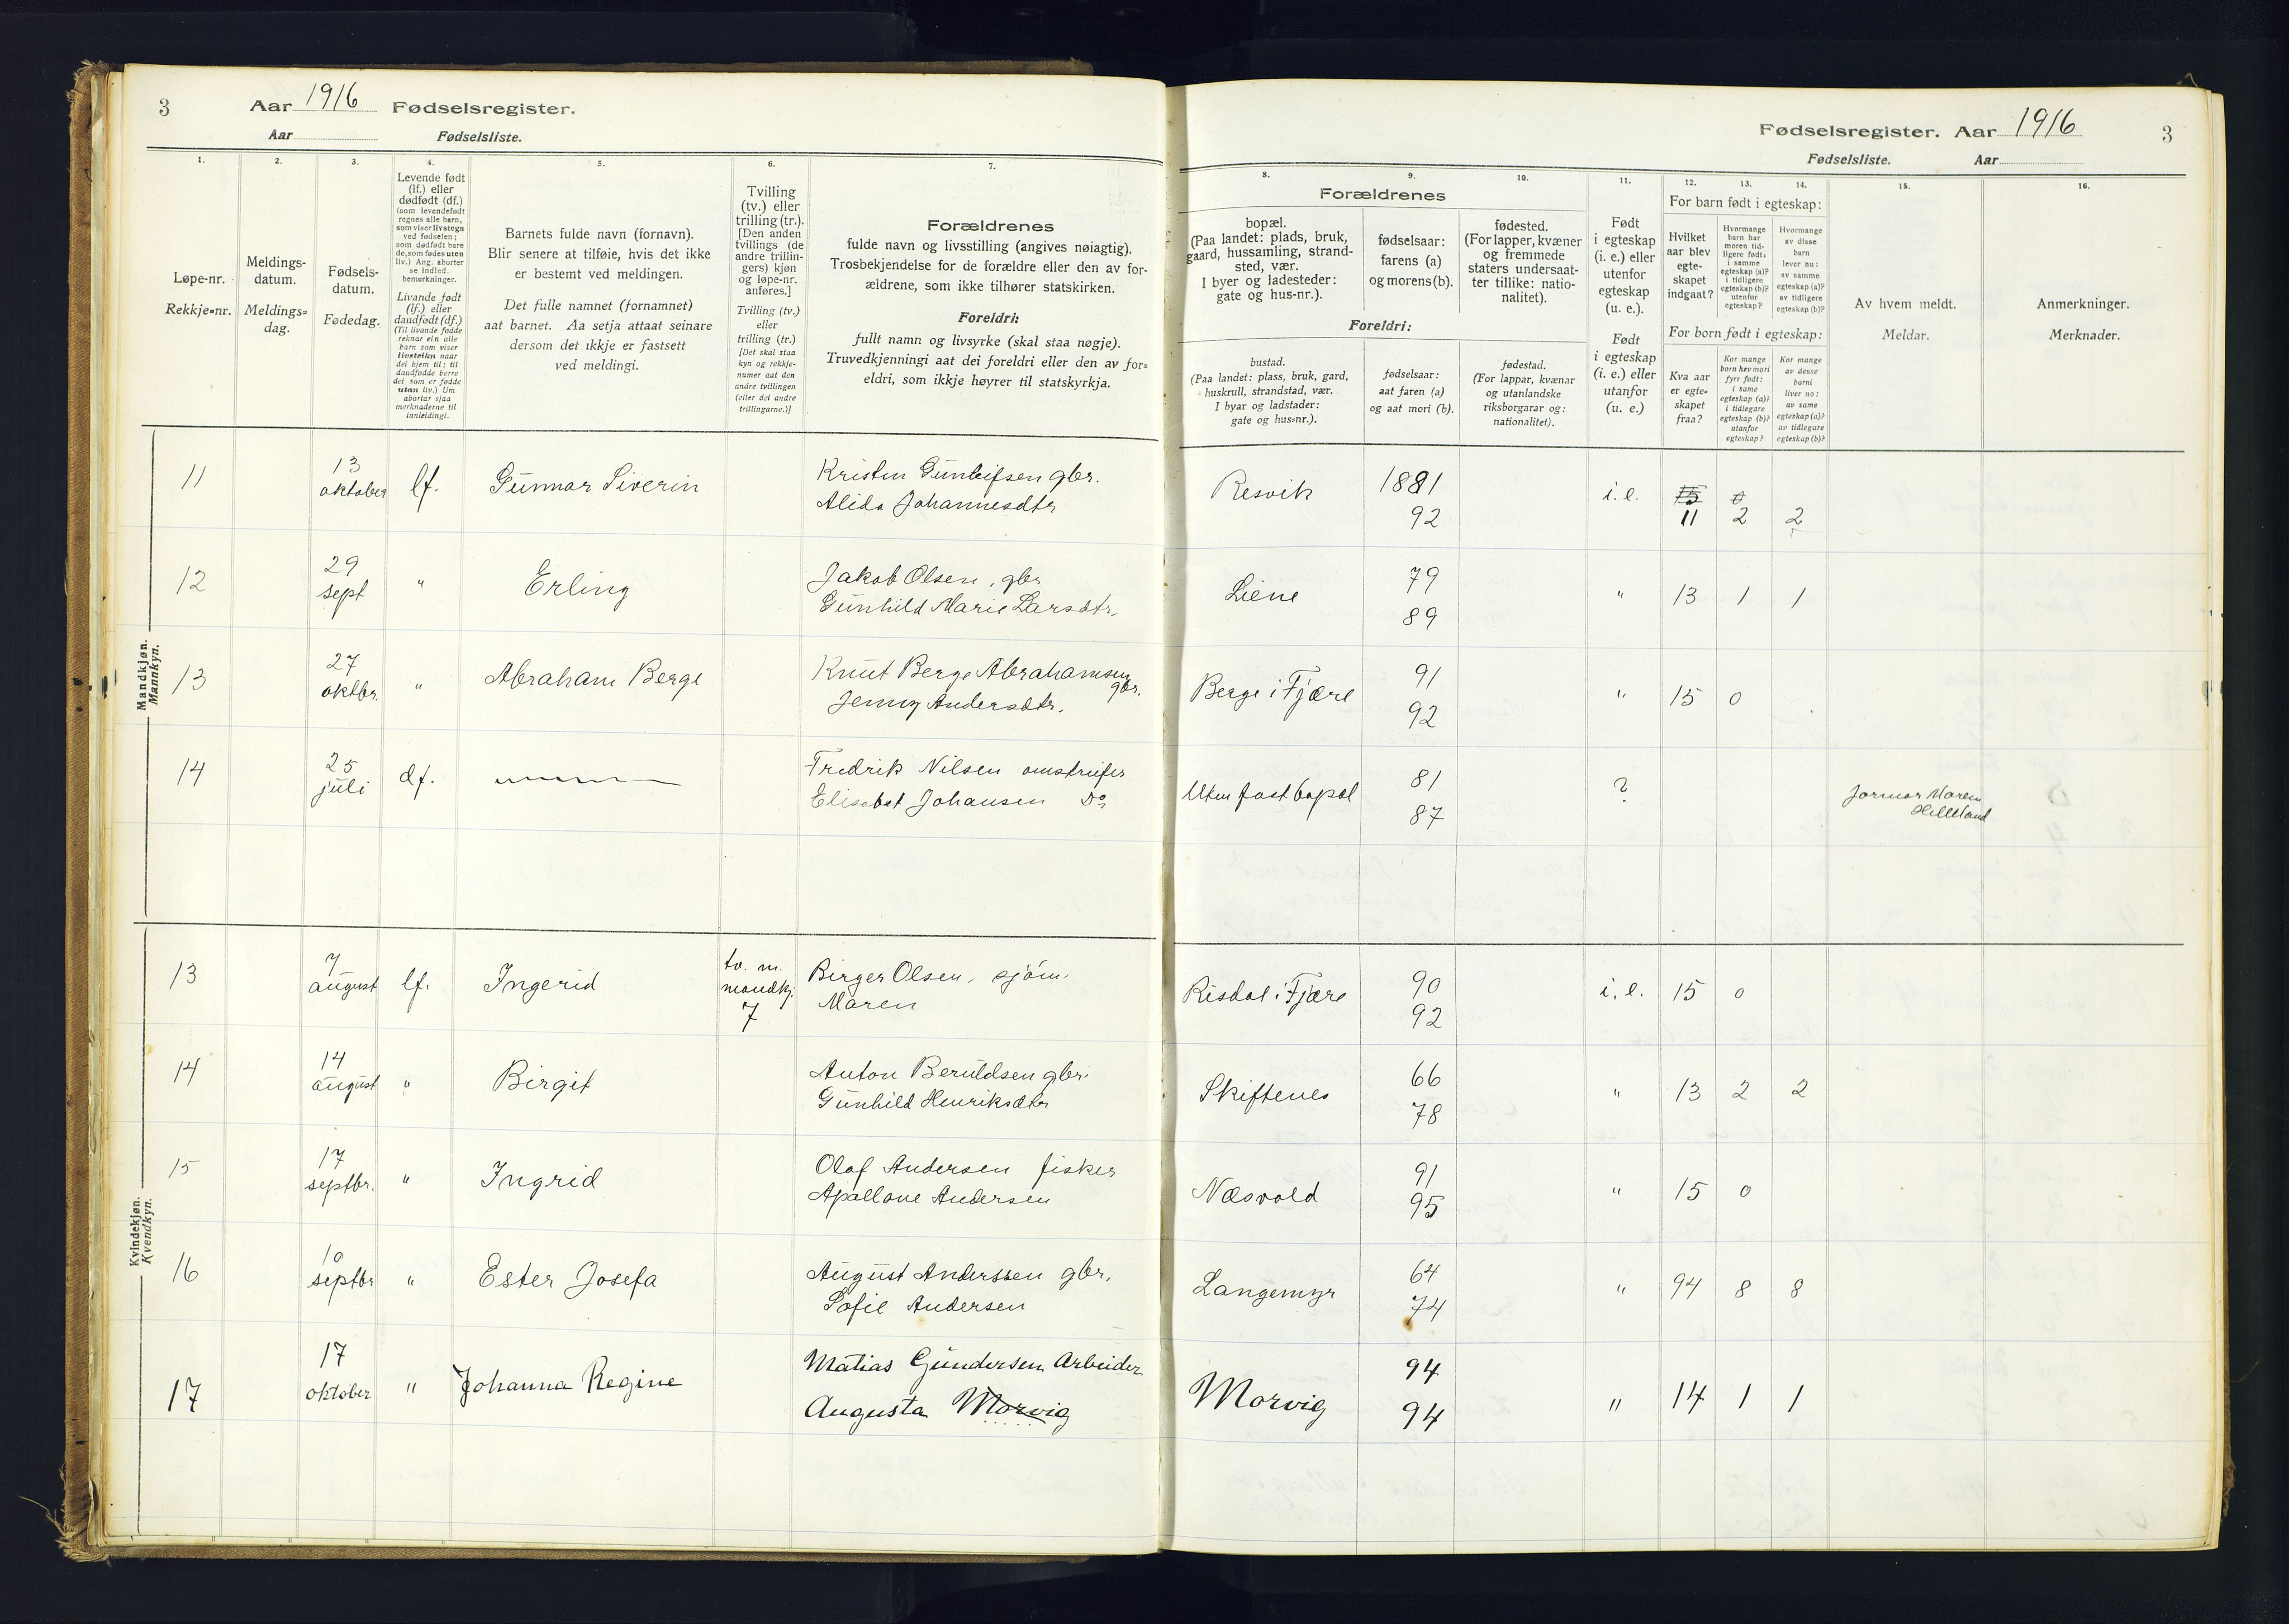 3
Aar 1916 Fødselsregister.
Aar Fødselsliste.
1.
2.
3.
4.
5.
6.
7.
Løpe-nr.
Rekkje=nr.
Meldings-
datum.
Meldings=
dag.
Fødsels-
datum.
Fødedag.
Levende født
(lf.) eller
dødfødt (df.)
(som levendefødt
regnes alle barn,
som viser livstegn
ved fødselen;
som dødfødt bare
de, som fødes uten
liv.) Ang. aborter
se indled.
bemerkninger.
Livande født
(lf.) eller
daudfødt (df.)
(Til livande fødde
reknar ein alle
barn som viser
livsteikn naar
dei kjem til; til
daudfødde berre
dei som er fødde
utan liv.) Um
abortar sjaa
merknaderne til
innleidingi.
Barnets fulde navn (fornavn).
Blir senere at tilføie, hvis det ikke
er bestemt ved meldingen.
Det fulle namnet (fornamnet)
aat barnet. Aa setja attaat seinare
dersom det ikkje er fastsett
ved meldingi.
Tvilling
(tv.) eller
trilling (tr.).
[Den anden
tvillings (de
andre trillin-
gers) kjøn
og løpe-nr.
anføres.]
Tvilling (tv.)
eller
trilling (tr.)
[Det skal staa
kyn og rekkje-
numer aat den
andre tvillingen
(eller dei andre
trillingarne.)]
Forældrenes
fulde navn og livsstilling (angives nøiagtig).
Trosbekjendelse for de forældre eller den av for-
ældrene, som ikke tilhører statskirken.
Foreldri:
fullt namn og livsyrke (skal staa nøgje).
Truvedkjenningi aat dei foreldri eller den av for=
eldri, som ikkje høyrer til statskyrkja.
Mandkjøn.
Mannkyn.
11
13
oktober
lf.
Gunnar Siverin
Kristen Gunleifsen gbr.
Alida Johannesdtr
12
29
sept
"
Erling
Jakob Olsen, gbr
Gunhild Marie Larsdtr.
13
27
oktbr.
"
Abraham Berge
Knut Berge Abrahamsen
gbr.
Jenny Andersdtr.
14
25
juli
df.
Fredrik Nilsen omstreifer
Elisabet Johansen Do
Kvindekjøn.
Kvendkyn.
13
7
august
lf.
Ingerid
tv. m.
mandkj.
7
Birger Olsen, sjöm.
Maren
14
14
august
"
Birgit
Anton Beruldsen gbr.
Gunhild Henriksdtr
15
17
septbr.
"
Ingrid
Olaf Andersen fisker
Apallone Andersen
16
10
septbr
"
Ester Josefa
August Anderssen gbr.
Sofie Andersen
17
17
oktober
"
Johanna Regine
Matias Gundersen Arbeider
Augusta Morvig
Fødselsregister. Aar 1916
3
Fødselsliste. Aar
8.
9.
10.
11.
12.
13.
14.
15.
16.
Forældrenes
bopæl.
(Paa landet: plads, bruk,
gaard, hussamling, strand-
sted, vær.
I byer og ladesteder:
gate og hus-nr.).
fødselsaar:
farens (a)
og morens (b).
fødested.
(For lapper, kvæner
og fremmede
staters undersaat-
ter tillike: natio-
nalitet).
Foreldri:
bustad.
(Paa landet: plass, bruk, gard,
huskrull, strandstad, vær.
I byar og ladstader:
gate og hus=nr.).
fødselsaar:
aat faren (a)
og aat mori (b).
fødestad.
(For lappar, kvænar
og utanlandske
riksborgarar og:
nationalitet).
Født
i egteskap
(i. e.) eller
utenfor
egteskap
(u. e.).
Født
i egteskap
(i. e.) eller
utanfor
(u. e.)
For barn født i egteskap:
Hvilket
aar blev
egte-
skapet
indgaat?
Hvormange
barn har
moren tid-
ligere født:
i samme
egteskap (a)?
i tidligere
egteskap (b)?
utenfor
egteskap?
Hvormange
av disse
barn
lever nu:
av samme
egteskap (a)?
av tidligere
egteskap (b)?
For born født i egteskap:
Kva aar
er egte-
skapet
fraa?
Kor mange
born hev mori
fyrr født:
i same
egteskap (a)?
i tidlegare
egteskap (b)?
utanfor
egteskap?
Kor mange
av desse
barni
liver no:
av same
egteskap (a)?
av tidlegare
egteskap (b)?
Av hvem meldt.
Meldar.
Anmerkninger.
Merknader.
Resvik
1881
92
i. e.
15
0
11
2
2
Liene
79
89
"
13
1
1
Berge i Fjære
91
92
"
15
0
Uten fast bopæl
81
87
?
jormor Maren
Hilleland
Risdal i Fjære
90
92
i. e.
15
0
Skiftenes
66
78
"
13
2
2
Næsvold
91
95
"
15
0
Langemyr
64
74
"
94
8
8
Morvig
94
94
"
14
1
1